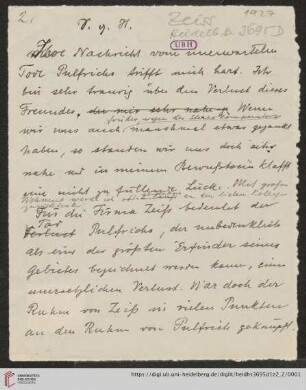 2.
1927
Zeiss
Heidelb. Hs. 3695 D
V. g. H.
UBH
Ihre Nachricht vom unerwarteten
Tode Pulfrichs trifft mich hart. Ich
bin sehr traurig über den Verlust dieses
Freundes, der mir sehr nahe Wenn
früher wegen des Stereokomparators
wir uns auch manchmal etwas gezankt
haben, so standen wir uns doch sehr
nahe und in meinem klafft
eine nicht zu füllende Lücke. Mit großer
Wehmut werde ich an den lieben Kollegen
Für die Firma Zeiß bedeutet der
Tod
Verlust Pulfrichs, der unbedenklich
als einer der größten Erfinder seines
Gebietes bezeichnet werden kann, einen
unersetzlichen Verlust. War doch der
Ruhm von Zeiß in vielen Punkten
an den Ruhm von Pulfrich geknüpft.
UNIVERSITÄTS-
BIBLIOTHEK
HEIDELBERG
https://digi.ub.uni-heidelberg.de/diglit/heidhs3695d1z2_2/0001